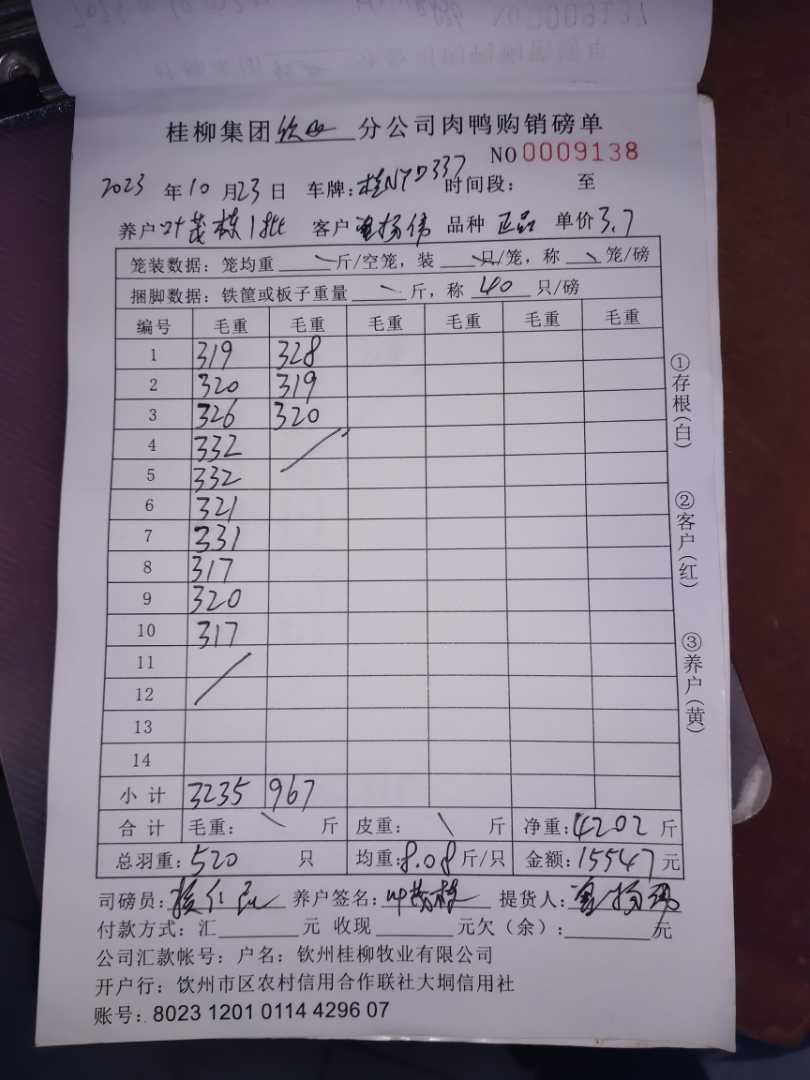 桂柳集团钦 分公司肉鸭购销磅单
NO 0009138
2023 年 10 月 23 日 车牌: 桂NYD337 时间段: 至
养户 叶茂栋1批 客户 杨伟 品种 正品 单价 3.7
笼装数据: 笼均重 斤/空笼, 装 只/笼, 称 笼/磅
捆脚数据: 铁筐或板子重量 斤, 称 40 只/磅
编号 毛重 毛重 毛重 毛重 毛重 毛重
1 319 328
2 320 319
3 326 320
4 332
5 332
6 321
7 331
8 317
9 320
10 317
11
12
13
14
小计 3235 967
合计 毛重: 斤 皮重: 斤 净重: 4202 斤
总羽重: 520 只 均重: 8.08 斤/只 金额: 15547 元
司磅员: 养户签名: 叶茂栋 提货人:
付款方式: 汇 元 收现 元欠(余): 元
公司汇款帐号: 户名: 钦州桂柳牧业有限公司
开户行: 饮州市区农村信用合作联社大垌信用社
账号: 8023 1201 0114 4296 07
①存根(白) ②客户(红) ③养户(黄)